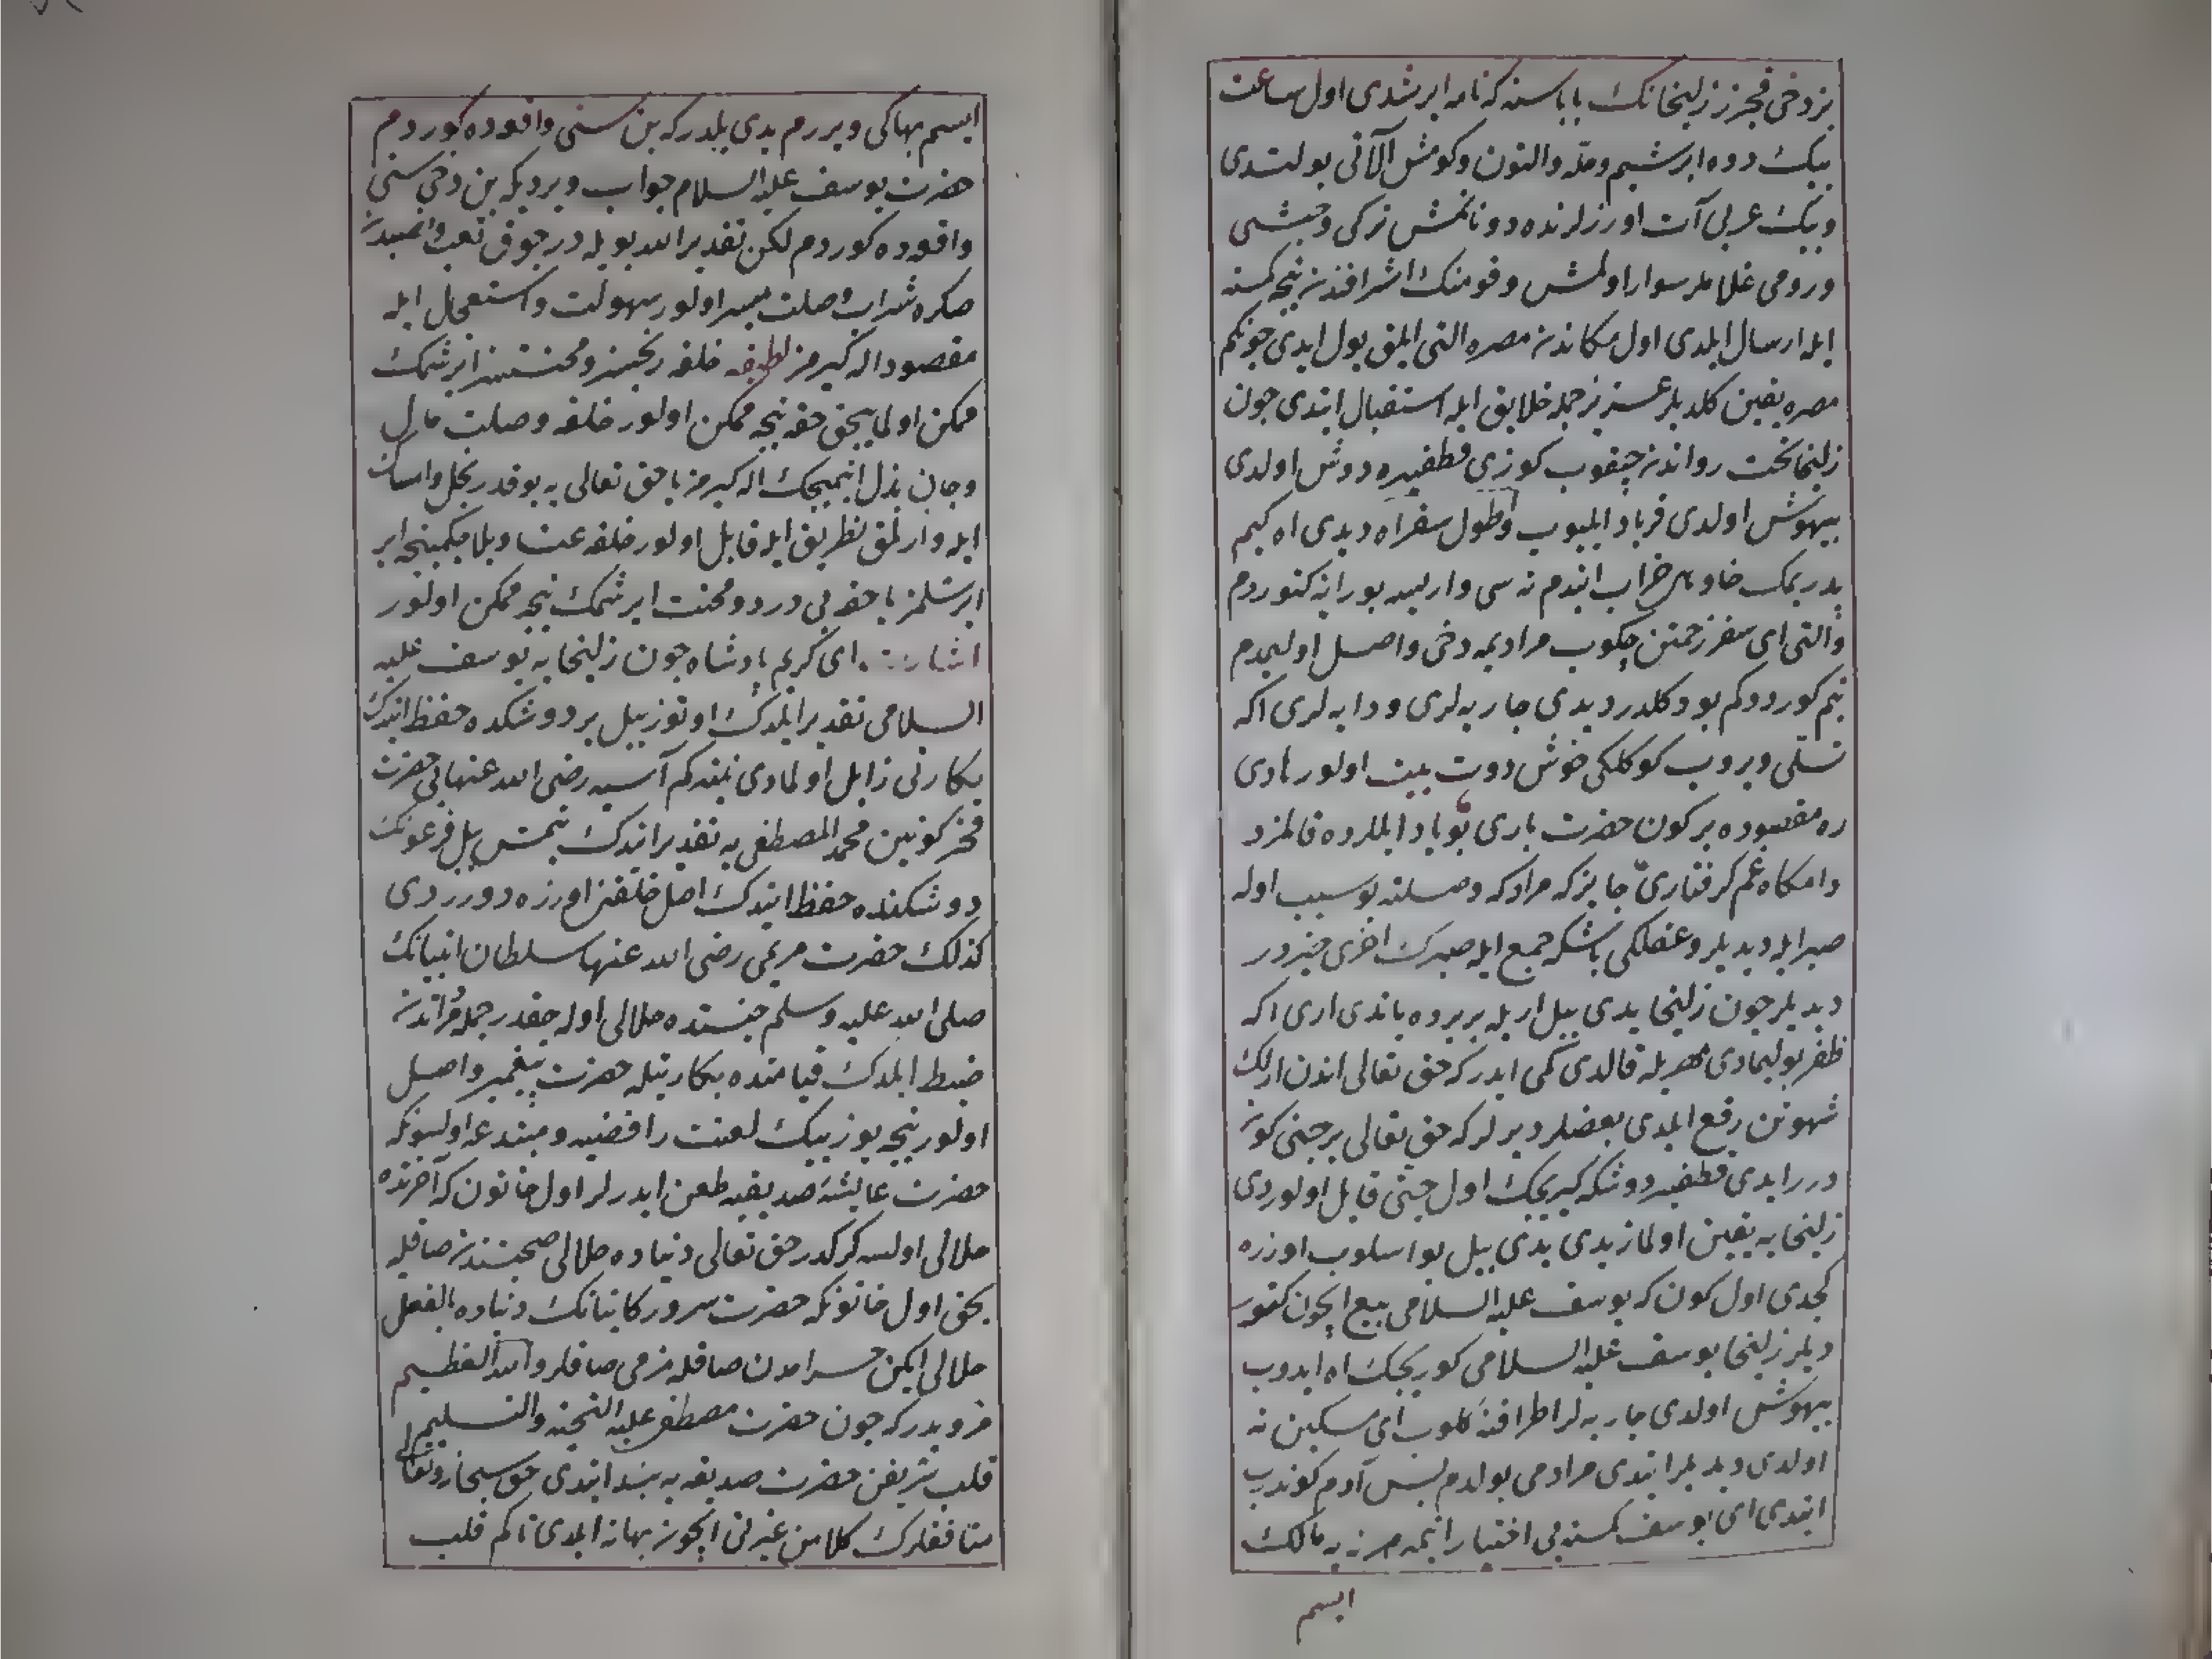 بز دخی قجرز زلیخانك باباسنه که نامه ایرشدی اول ساعت
بیك دوه ابرشیم وحله والتون وکومش آلاتی یولتدی
وبیك عربی آت اوزرلرنده دونانمش ترکی وحبشی
ورومی غلاملر سوار اولمش وقومنك اشرافندن نیجه کمسنه
ایله ارسال ایلدی اول مکاندن مصره التی ایلق یول ایدی چونکم
مصره یقین کلدیلر عزیز جمله خلایق ایله استقبال ایتدی چون
زلیخا تخت رواندن چیقوب کوزی قطفیره دوش اولدی
بیهوش اولدی فریاد ایلیوب وطول سفراه دیدی اه کیم
پدریمك خراب ایتدم نه سی واریسه بورایه کتوردم
والتی ای سفر زحمتن چکوب مرادیمه دخی واصل اولیمدم
بنم کوردوکم بو دکلدر دیدی جاریه لری ودایه لری اکه
تسلی ویروب کوکلکی خوش دوت بیت اولور هادی
ره مقصوده بر کون حضرت باری بو یاد ایللرده قالمزد
دامکاه غم کرفتاری جایزکه مرادکه وصلته بو سبب اوله
صبر ایله دیدیلر وعقلکی باشکه جمع ایله صبرك اخری خیردر
دیدیلر چون زلیخا یدی ییل اریله بر یرده یاتدی اری اکه
ظفر بولیمادی مهریله قالدی کمی ایدر که حق تعالی اندن ارلك
شهوتن رفع ایلدی بعضلر دیرلر که حق تعالی بر جنی کوند
درر ایدی قطفیر دوشکه کیریجك اول جنی قابل اولوردی
زلیخایه یقین اولمازیدی یدی ییل بو اسلوب اوزره
کجدی اول کون که یوسف علیه السلامی بیع ایچون کتور
دیلر زلیخا یوسف علیه السلامی کوریجك اه ایدوب
بیهوش اولدی جاریه لر اطرافنه کلوب ای مسکین نه
اولدی دیدیلر ایتدی مرادمی بولدم پس آدم کوندرب
ایتدی ای یوسف کمسنه یی اختیار ایتمه هر نه یه مالك
ایسم
ایسم بهاکی ویررم یدی ییلدر که بن سنی واقعه ده کوردم
حضرت یوسف علیه السلام جواب ویردیکه بن دخی سنی
واقعه ده کوردم لکن تقدیر الله بویله در چوق تعب
صکره شراب وصلت میسر اولور سهولت واستعجال ایله
مقصود اله کیرمز لطیفه خلقه رنجسز ومحنتسز ایرشمك
ممکن اولمایجق حقه نیجه ممکن اولور خلقه وصلت مال
وجان بذل ایتمیجك اله کیرمز یا حق تعالی یه بوقدر بخل وامساك
ایله وارلمق نه طریق ایله قابل اولور خلقه عنا وبلا چکمینجه
ایرشلمز یا حقه بی درد ومحنت ایرشمك نیجه ممکن اولور
اشارت ای کریم پادشاه چون زلیخایه یوسف علیه
السلامی تقدیر ایلدك اوتوز ییل بر دوشکده حفظ ایتدك
بکارتی زایل اولمادی نیتکم آسیه رضی الله عنهایی حضرت
فخر کونین محمد المصطفی یه تقدیر ایتدك یتمش ییل فرعونك
دوشکنده حفظ ایتدك اصل خلقتی اوزره دوررد ی
کذلك حضرت مریمی رضی الله عنها سلطان انبیانك
صلی الله علیه وسلم جنتده حلالی اوله جقدر جمله مراتدن
ضبط ایلدك قیامتده بکارتیله حضرت پیغمبر واصل
اولور نیجه یوز بیك لعنت رافضیه ومبتدعه اولسونکه
حضرت عایشه صدیقیه طعن ایدرلر اول خاتون که آخرتده
حلالی اولسه کرکدر حق تعالی دنیاده حلالی صحبتندن صاقلیه
یجق اول خاتونکه حضرت سرور کایناتك دنیاده بالفعل
حلالی ایکن حرامدن صاقله مزمی صاقلر والله العظیم
مرویدر که چون حضرت مصطفی علیه التحیه والتسلیم
قلب شریفن حضرت صدیقه یه بند ایتدی حق سبحانه وتعالی
منافقلرك کلامن غیرتی ایچون بهانه ایلدی تا کم قلب